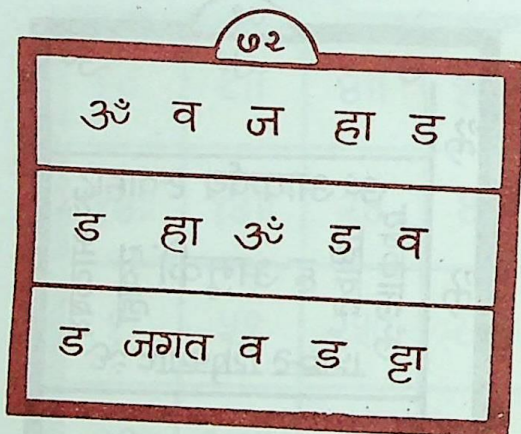 ७२
ॐ व ज हा ड
ड हा ॐ ड व
ड जगत व ड ट्टा